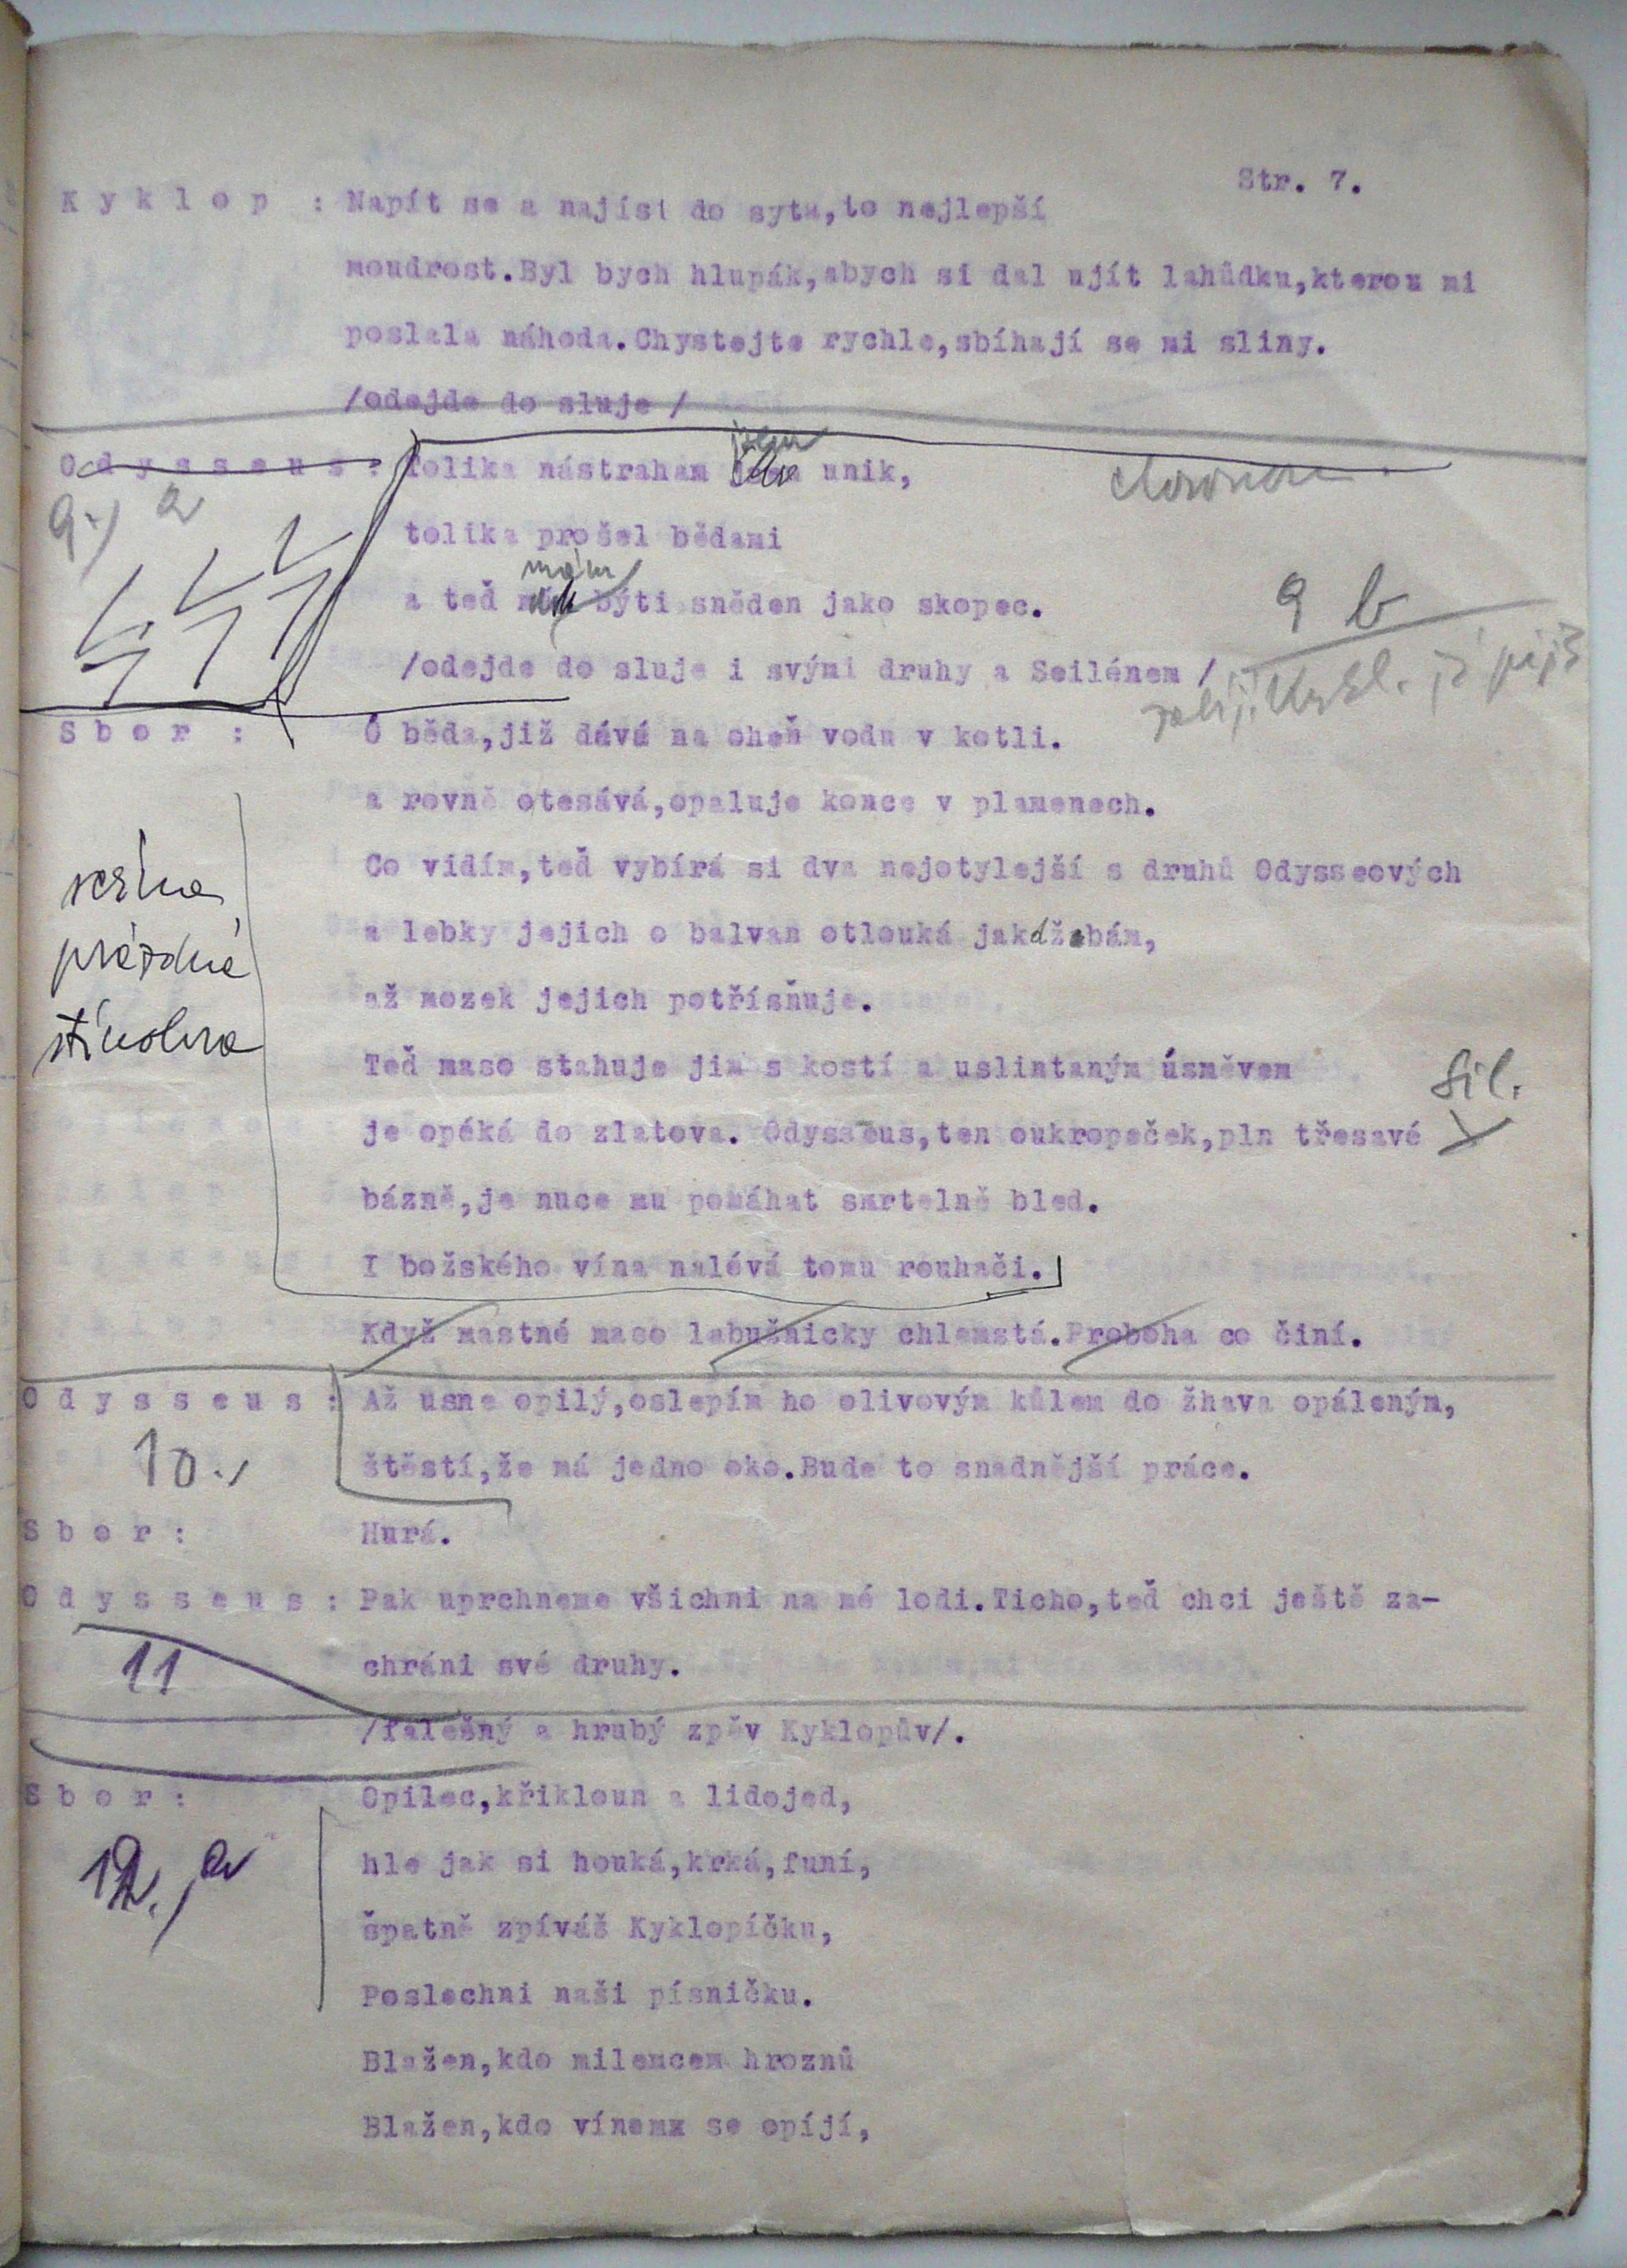 Str. 7.
K y k l o p : Napít se a najíst do syta,to nejlepší
moudrost.Byl bych hlupák,abych si dal ujít lahůdku,kterou mi
poslala náhoda.Chystejte rychle,sbíhají se mi sliny.
/odejde do sluje /
jsem
O d y s s e u s : Tolika nástraham unik,
9.) a
tolika prošel bědami
mám
a teď býti sněden jako skopec.
9 b
/odejde do sluje i svými druhy a Seilénem /
S b o r : Ó běda,již dává na oheň vodu v kotli.
a rovně otesává,opaluje konce v plamenech.
Co vidím,teď vybírá si dva nejotylejší s druhů Odysseových
scéna
a lebky jejich o balvan otlouká jako žabám,
prázdná
až mozek jejich potřísňuje.
stínohra
Teď maso stahuje jim s kostí a uslintaným úsměvem
Sil.
je opéká do zlatova. Odysseus,ten oukropeček,pln třesavé
bázně,je nuce mu pomáhat smrtelně bled.
I božského vína nalévá tomu rouhači.
Když mastné maso labušnicky chlemstá.Proboha co činí.
O d y s s e u s : Až usne opilý,oslepím ho olivovým kůlem do žhava opáleným,
10.)
štěstí,že má jedno oko.Bude to snadnější práce.
S b o r : Hurá.
O d y s s e u s : Pak uprchneme všichni na mé lodi.Ticho,teď chci ještě za-
11
chráni své druhy.
/falešný a hrubý zpěv Kyklopův/.
S b o r : Opilec,křikloun a lidojed,
12.) a
hle jak si houká,krká,funí,
špatně zpíváš Kyklopíčku,
Poslechni naši písničku.
Blažen,kdo milencem hroznů
Blažen,kdo vínemx se opíjí,